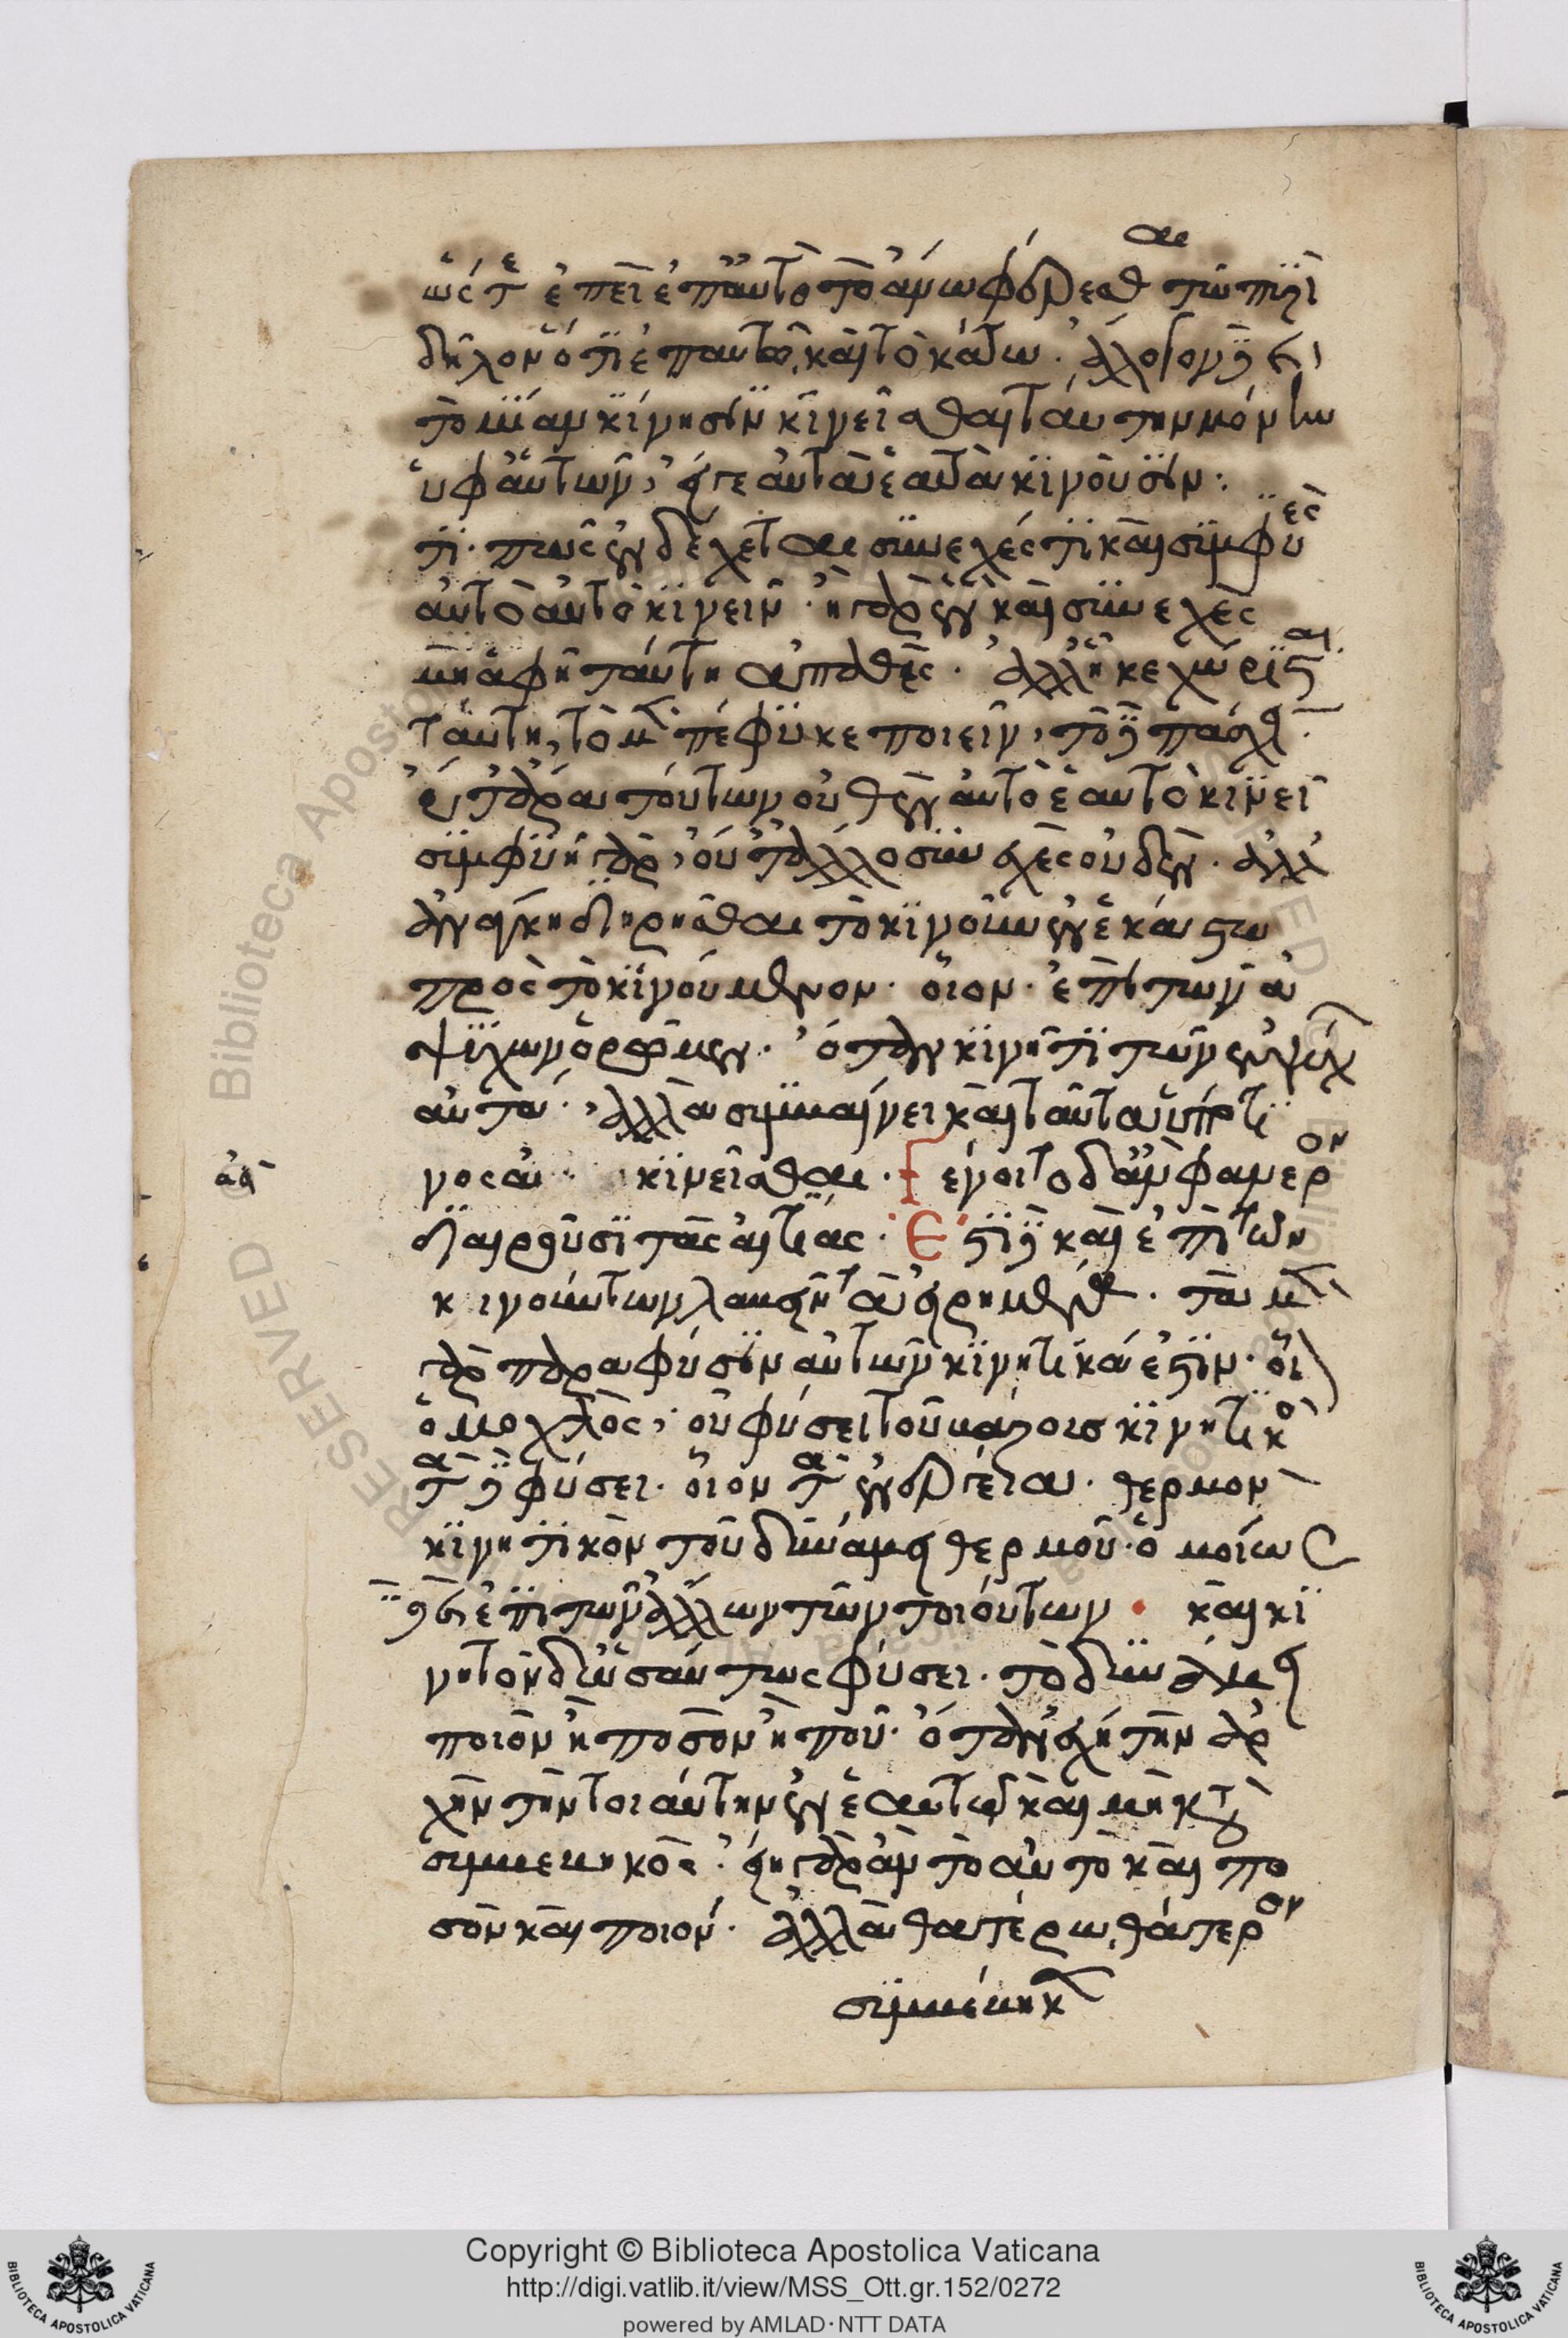 ὥστε ἐπεὶ ἐπ' αὐτὸ τὸ ἄνω φέρεσθαι τῶ πυρὶ
δῆλον ὅτι ἐπ' αὐτῶ καὶ τὸ κάτω. ἄλογον δὲ καὶ
τὸ μίαν κίνησιν κινεῖσθαι ταύτην μόνην
ὑφ' αὑτῶν, εἴγε αὐτὰ ἑαυτὰ κινοῦσιν:
ἔτι. πῶς ἐνδέχεται συνεχές τι καὶ συμφυὲς
αὐτὸ αὑτὸ κινεῖν. ἧ γὰρ ἓν καὶ συνεχὲς
μὴ ἁφῆ ταύτη ἀπαθές. ἀλλ' ἧ κεχώρισται
ταύτη, τὸ μὲν πέφυκε ποιεῖν, τὸ δὲ πάσχειν
οὔτ' ἄρα τούτων οὐθὲν αὐτὸ ἑαυτὸ κινεῖ
συμφυῆ γὰρ, οὔτ' ἄλλο συνεχὲς οὐδέν. ἀλλ'
ἀνάγκη διῃρῆσθαι τὸ κινοῦν ἐν ἑκάστω
πρὸς τὸ κινούμενον. οἷον. ἐπὶ τῶν ἀ
ψύχων ὁρῶμεν. ὅταν κινῆ τι τῶν ἐμψύχων
αὐτά. ἀλλὰ συμβαίνει καὶ ταῦτα ὑπό τι
νος ἀεὶ κινεῖσθαι. Γένοιτο δ' ἂν φανερὸν
διαιροῦσι τὰς αἰτίας. Ἔστι δὲ καὶ ἐπὶ τῶν
κινούντων λαβεῖν τὰ εἰρημένα. τὰ μὲν
γὰρ παρὰ φύσιν αὐτῶν κινητικά ἐστιν. οἷον
ὁ μοχλὸς, οὐ φύσει τοῦ βάρους κινητικὸς
τὰ δὲ φύσει. οἷον τὰ ἐνεργείᾳ. θερμὸν
κινητικὸν τοῦ δυνάμει θερμοῦ. ὁμοίως
δὲ καὶ ἐπὶ τῶν ἄλλων τῶν τοιούτων. καὶ κι
νητὸν δ' ὡσαύτως φύσει. τὸ δυνάμει
ποιὸν ἢ ποσὸν ἢ ποῦ. ὅταν ἔχη τὴν ἀρ
χὴν τὴν τοιαύτην ἐν ἑαυτῶ καὶ μὴ κατὰ
συμβεβηκός. εἴη γὰρ ἂν τὸ αὐτὸ καὶ πο
σὸν καὶ ποιόν. ἀλλὰ θατέρω θάτερον
συμβέβηκεν
Copyright © Biblioteca Apostolica Vaticana
http://digi.vatlib.it/view/MSS_Ott.gr.152/0272
powered by AMLAD·NTT DATA